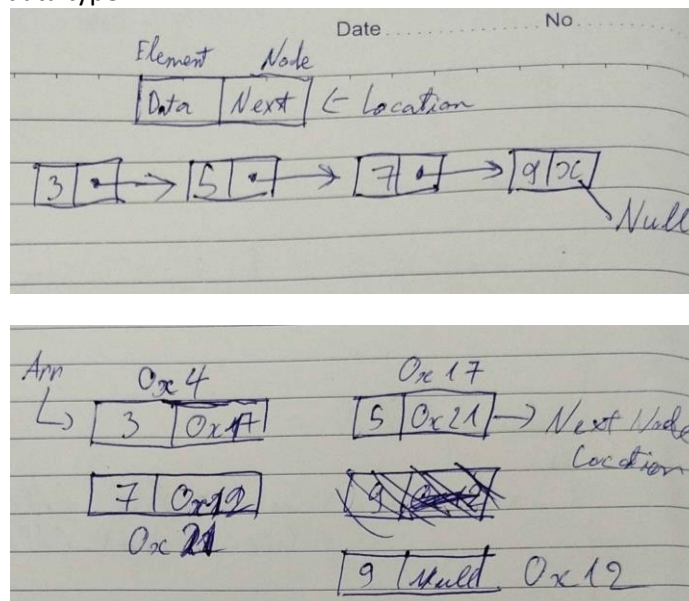 Date No
Element Node
Data Next ← Location
3 → 5 → 7 → 9 x
Null
Arr 0x4 0x17
3 0x17 5 0x21 → Next Node
Location
7 0x12 9
0x21
9 Null 0x12